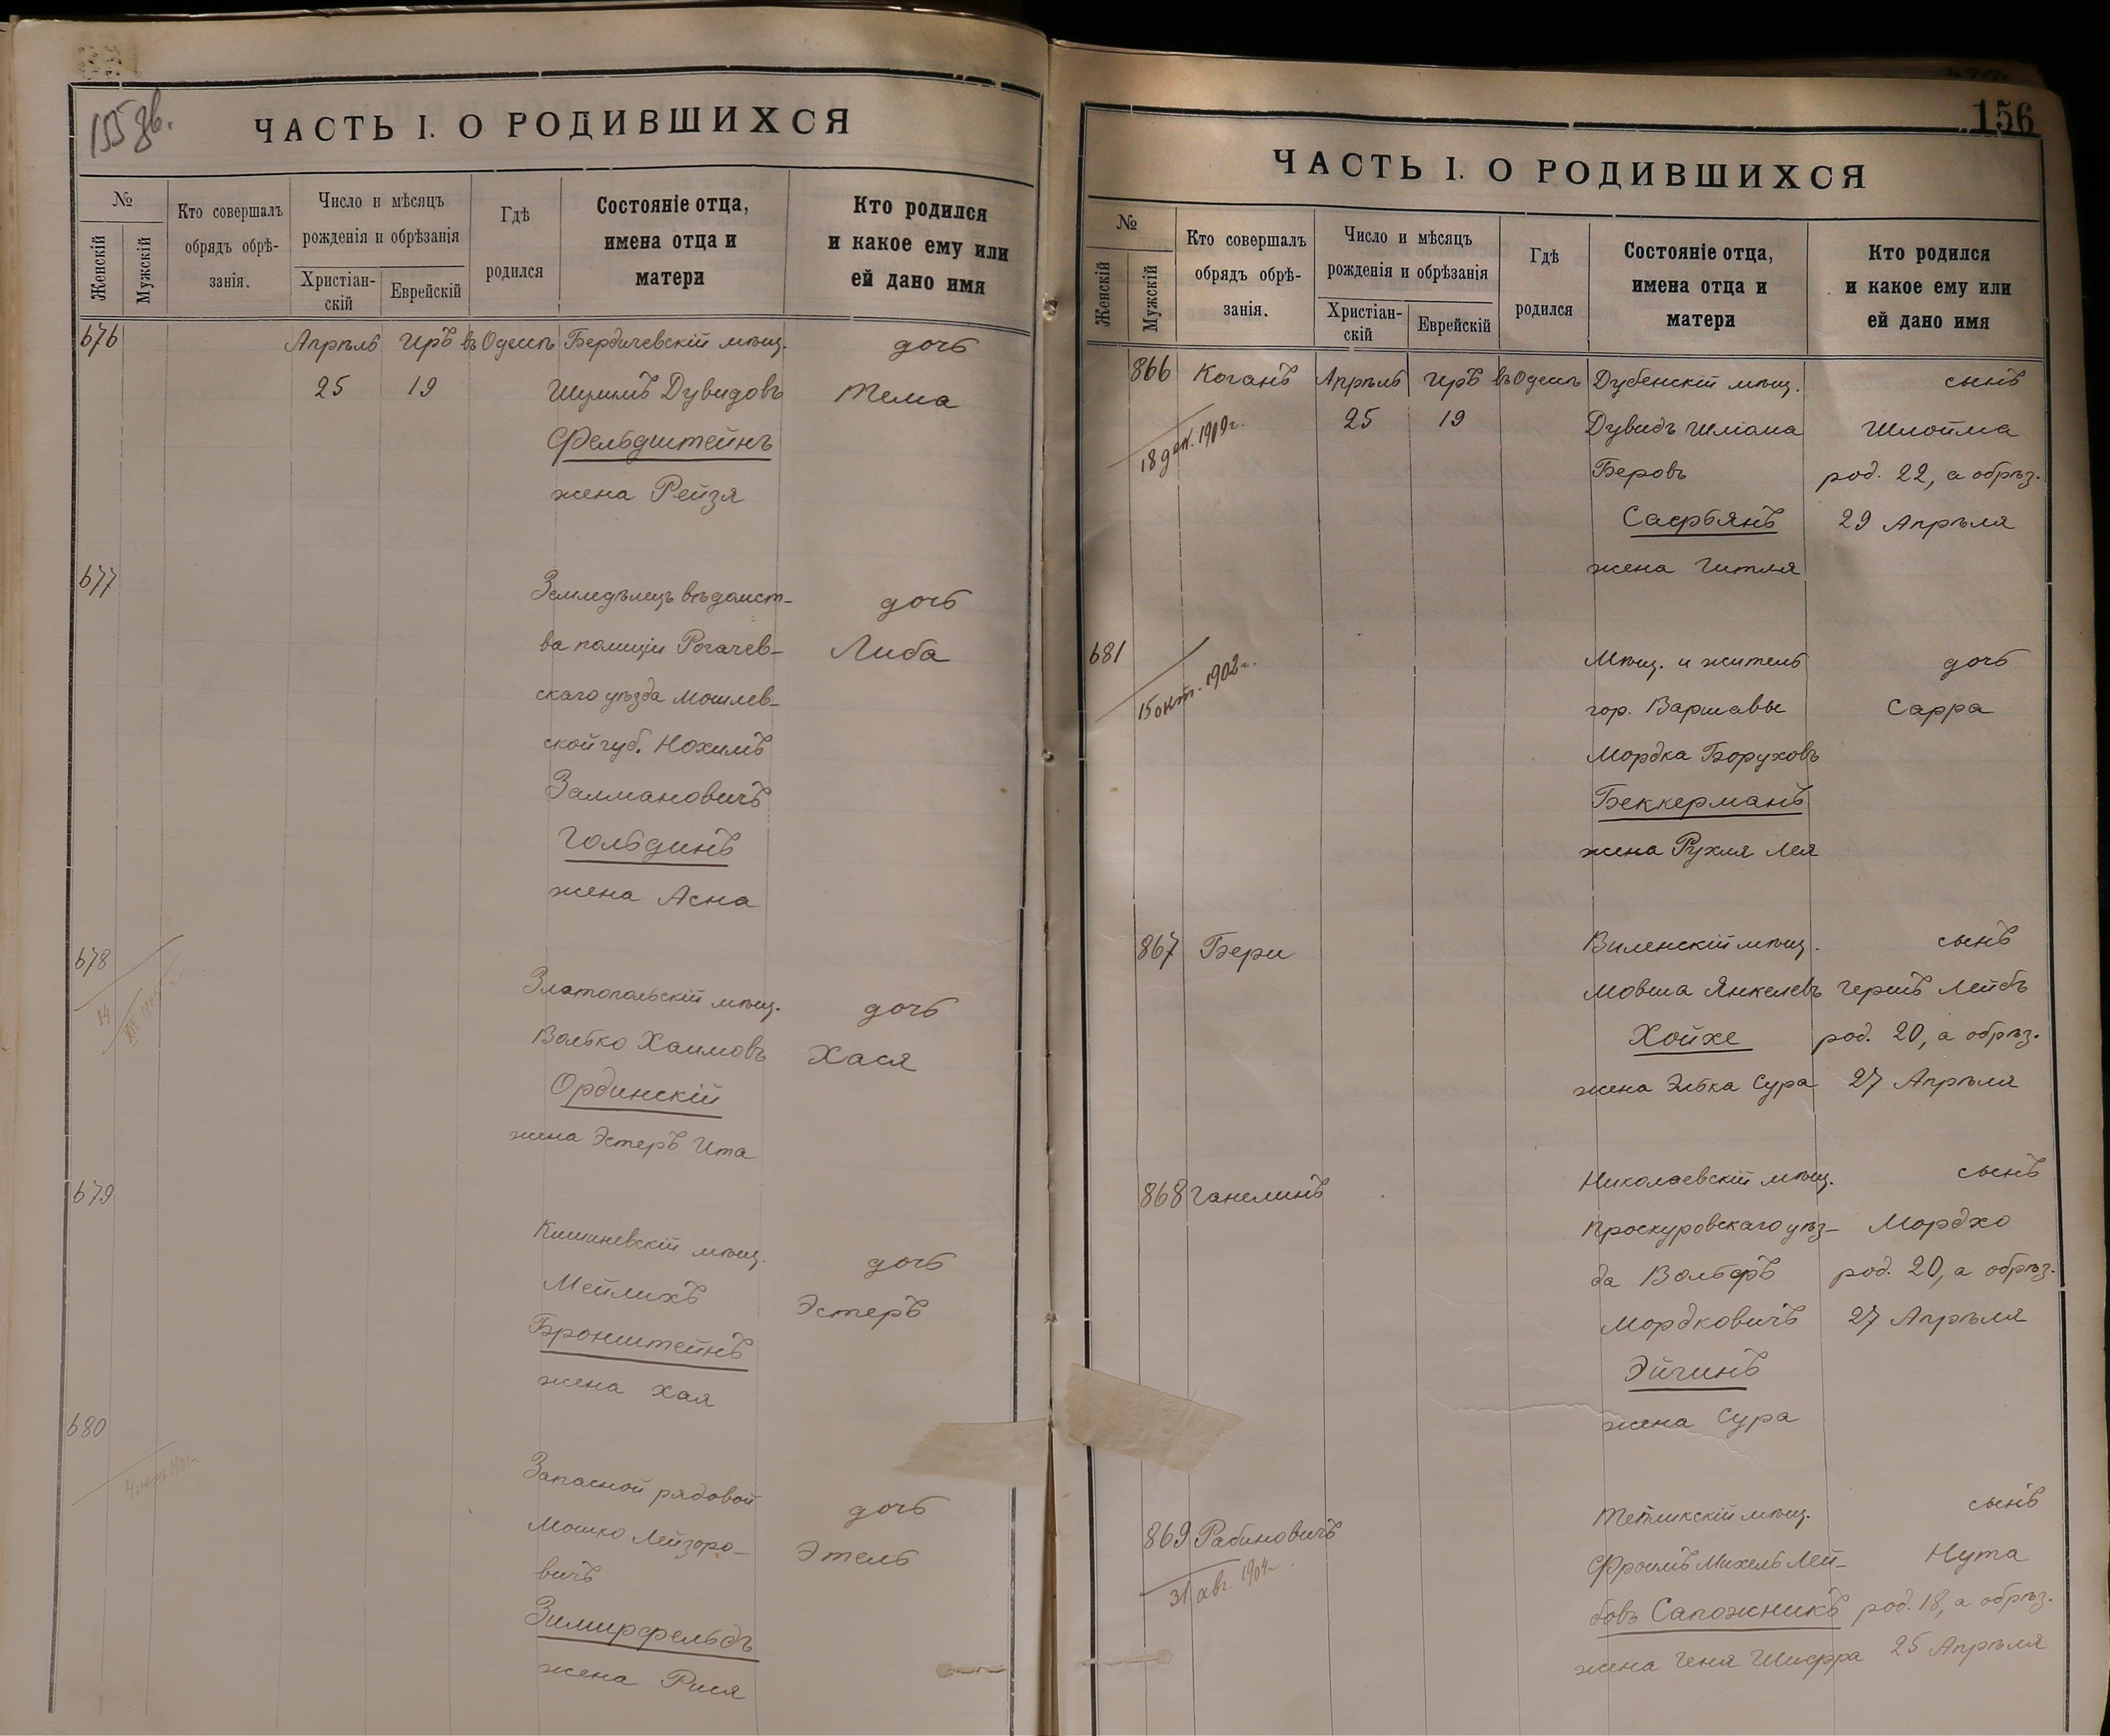 155 об.
ЧАСТЬ I. О РОДИВШИХСЯ
№
Женскій
Мужскій
Кто совершалъ
обрядъ обрѣ-
занія.
Число и мѣсяцъ
рожденія и обрѣзанія
Христіан-
скій
Еврейскій
Гдѣ
родился
Состояніе отца,
имена отца и
матери
Кто родился
и какое ему или
ей дано имя
676 Апрѣль Иръ въ Одессѣ Бердичевскій мѣщ. дочь
25 19 Шулимъ Дувидовъ Тема
Фельдштейнъ
жена Рейзя
677
Земледѣлецъ вѣдомст- дочь
ва полиціи Рогачев- Либа
скаго уѣзда Могилев-
ской губ. Нохимъ
Залмановичъ
Гольдинъ
жена Асна
678
14
Златопольскій мѣщ. дочь
Волько Хаимовъ Хася
Ординскій
жена Эстеръ Ита
679
Кишиневскій мѣщ. дочь
Мейлихъ Эстеръ
Бронштейнъ
жена Хая
680
Запасной рядовой дочь
Мошко Лейзоро- Этель
вичъ
Зимирфельдъ
жена Рися
156
ЧАСТЬ I. О РОДИВШИХСЯ
№
Женскій
Мужскій
Кто совершалъ
обрядъ обрѣ-
занія.
Число и мѣсяцъ
рожденія и обрѣзанія
Христіан-
скій
Еврейскій
Гдѣ
родился
Состояніе отца,
имена отца и
матери
Кто родился
и какое ему или
ей дано имя
866 Коганъ Апрѣль Иръ въ Одессѣ Дубенскій мѣщ. сынъ
18 дек. 1909 г. 25 19 Дувидъ Шліома Шлойма
Беровъ род. 22, а обрѣз.
Сафьянъ 29 Апрѣля
жена Гитля
681 Мѣщ. и житель дочь
15 окт. 1902 г. гор. Варшавы Сарра
Мордка Боруховъ
Беккерманъ
жена Рухля Лея
867 Бери Виленскій мѣщ. сынъ
Мовша Янкелевъ Гершъ Лейбъ
Хойхе род. 20, а обрѣз.
жена Элька Сура 27 Апрѣля
868 Ганелинъ Николаевскій мѣщ. сынъ
Проскуровскаго уѣз- Мордхо
да Вольфъ род. 20, а обрѣз.
Мордковичъ 27 Апрѣля
Эйчинъ
жена Сура
869 Рабиновичъ Тетіикскій мѣщ. сынъ
31 авг. 1904 г. Фроимъ Михель Лей- Нута
бовъ Сапожникъ род. 18, а обрѣз.
жена Геня Шифра 25 Апрѣля